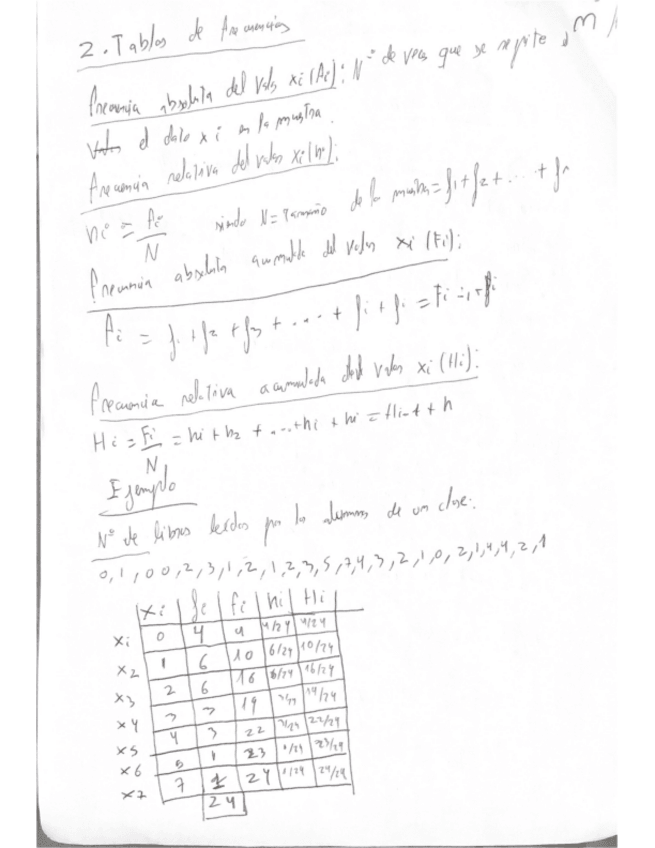 2. Tablas de frecuencias
frecuencia absoluta del valor xi (fi): Nº de veces que se repite
Valor el dato xi en la muestra.
frecuencia relativa del valor xi (hi):
hi = fi/N siendo N = Tamaño de la muestra = f1 + f2 + ... + fn
frecuencia absoluta acumulada del valor xi (Fi):
Fi = f1 + f2 + f3 + ... + fi + fi = Fi-1 + fi
frecuencia relativa acumulada del valor xi (Hi):
Hi = Fi/N = hi + h2 + ... + hi + hi = Hi-1 + h
Ejemplo
Nº de libros leídos por los alumnos de un clase:
0,1,00,2,3,1,2,1,2,3,5,7,4,3,2,1,0,2,1,4,4,2,1
xi fi Fi hi Hi
xi 0 4 4 4/24 4/24
x2 1 6 10 6/24 10/24
x3 2 6 16 6/24 16/24
x4 3 3 19 3/24 19/24
x5 4 3 22 3/24 22/24
x6 5 1 23 1/24 23/24
x7 7 1 24 1/24 24/24
24